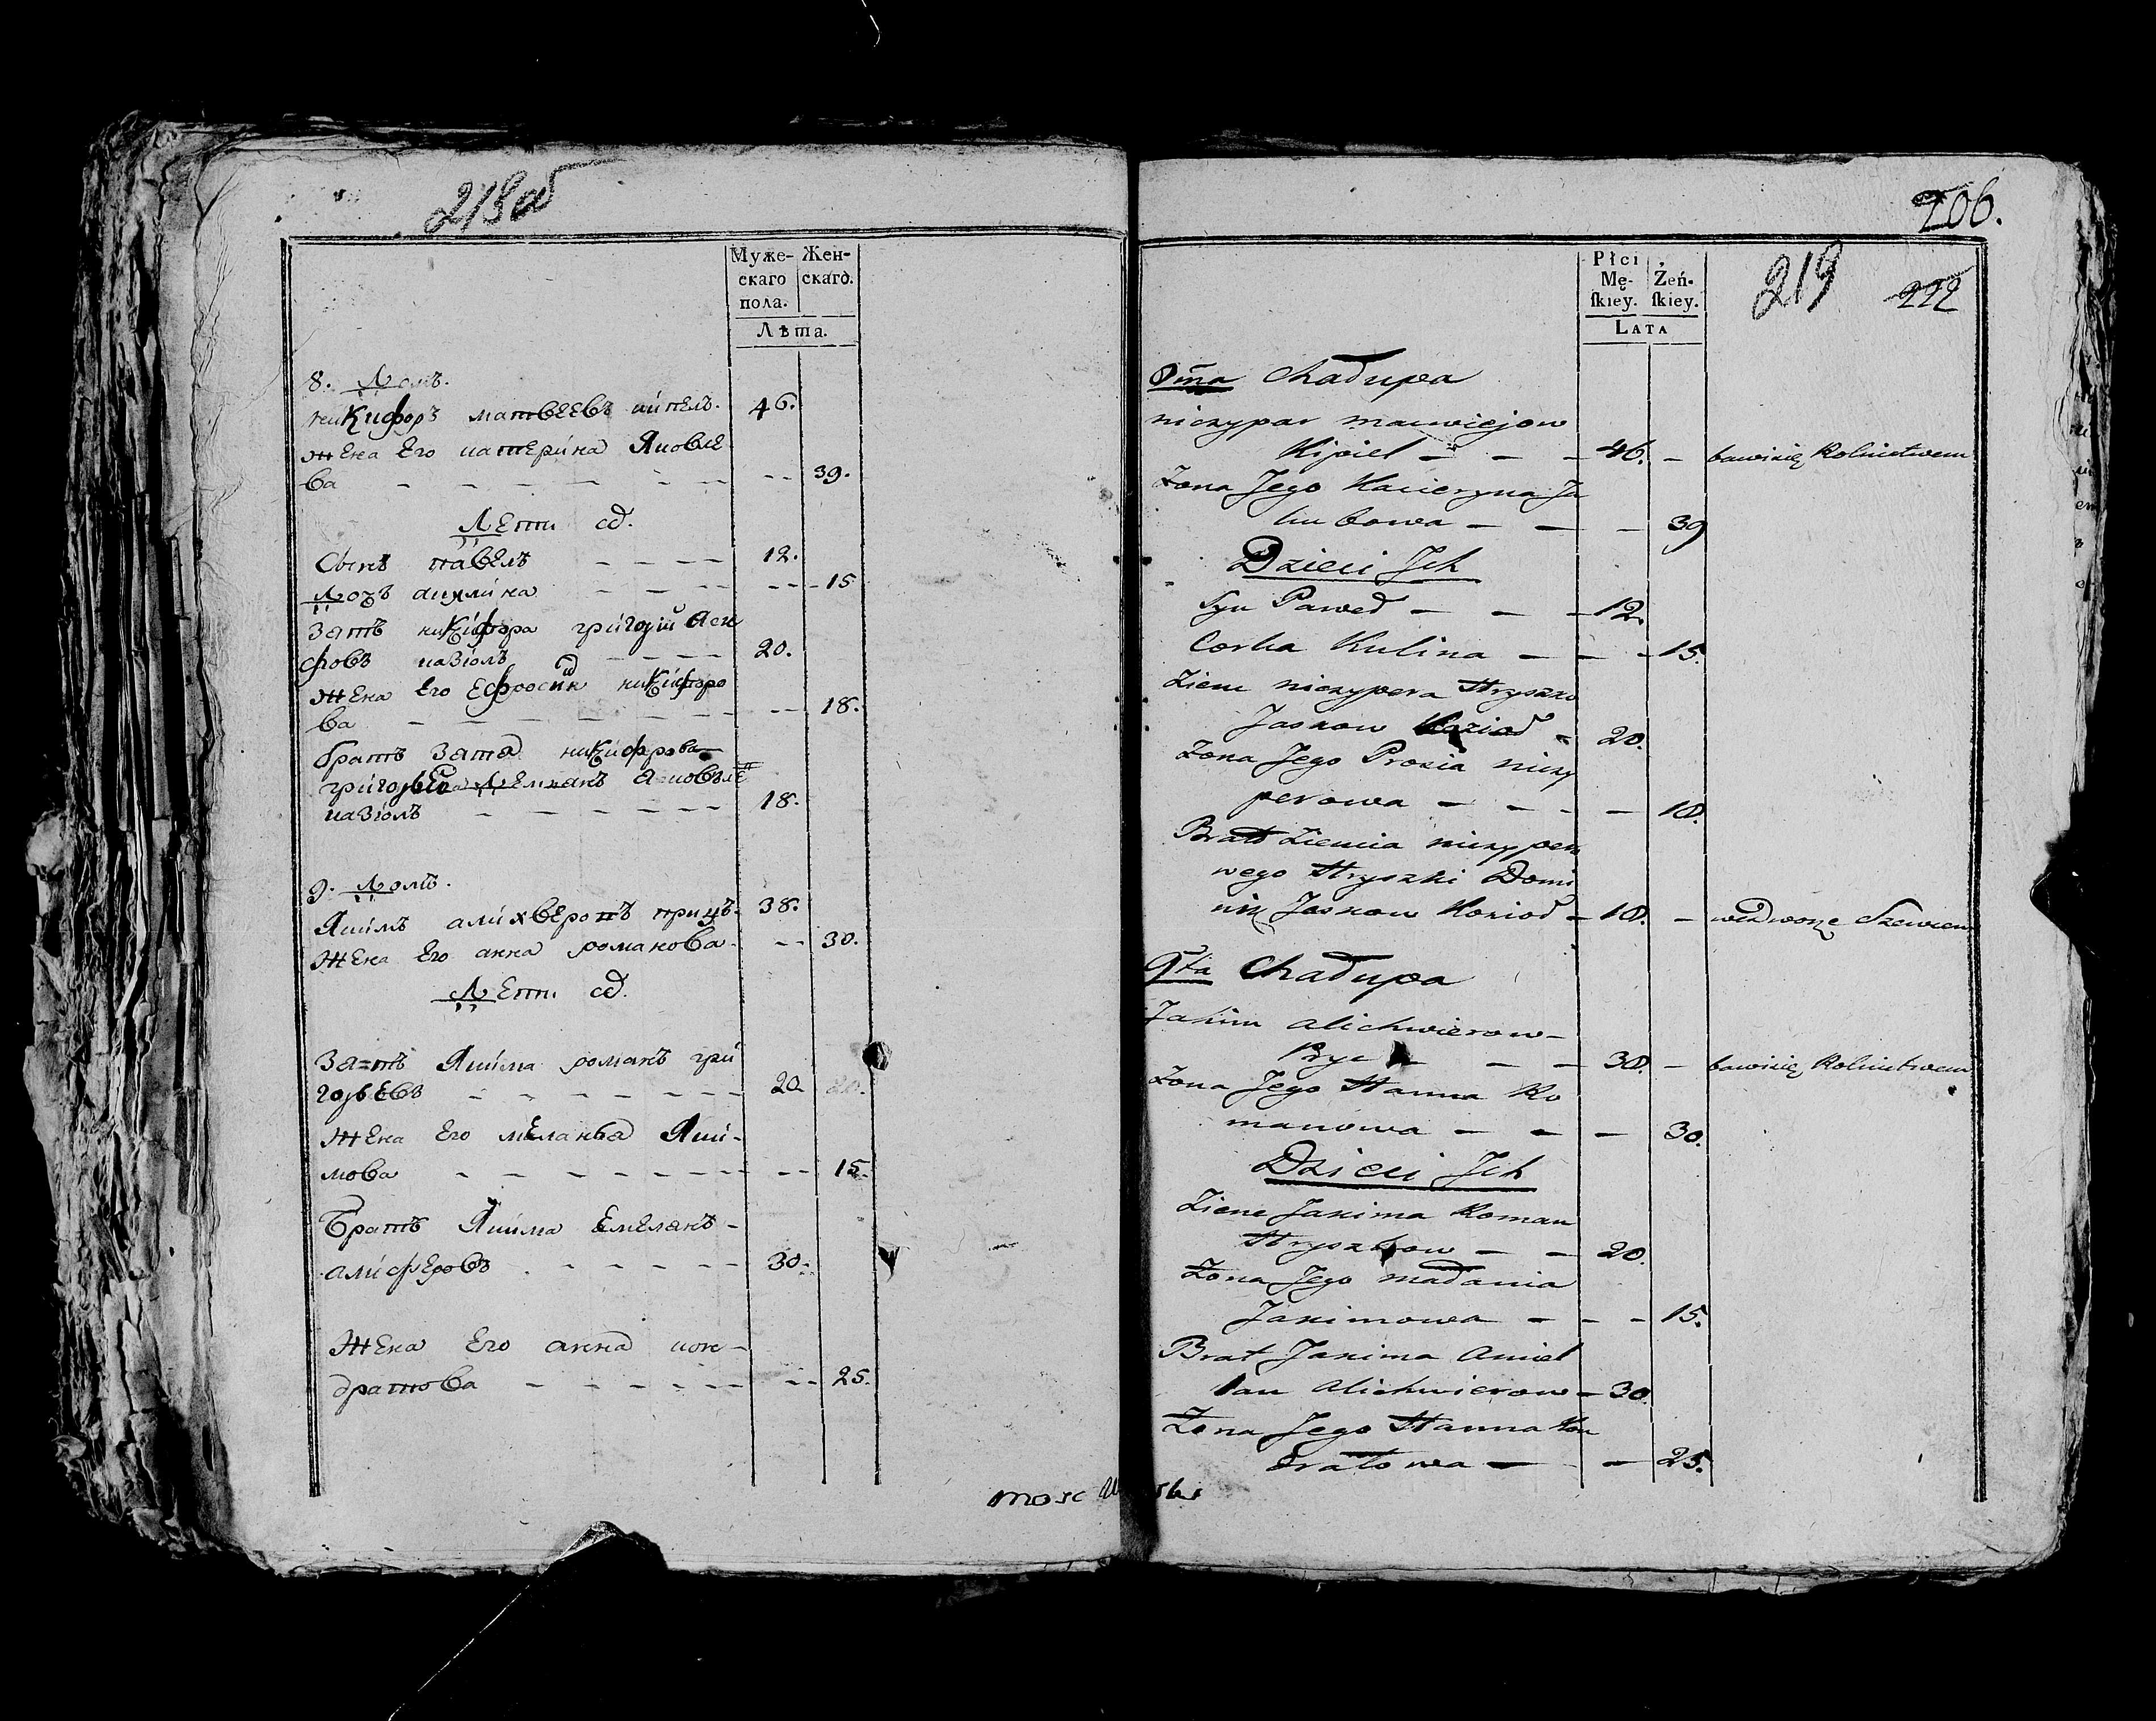 218об
Муже- Жен-
скаго скаго.
пола.
Лѣта.
8. Домъ.
никифоръ матвеевъ кипель. 46.
жена Его катерина Яковле
ва - - - - - - - - 39.
Дети ихъ.
Сынъ павелъ - - - - 12.
Дочь акилина - - - - - - 15
зять никифора григорий Яси
фовъ козіолъ - - - - 20.
жена Его Ефросиня никифоро
ва - - - - - - - - 18.
братъ зятя никифорова
григорьева Демианъ
козіолъ - - - - - - 18.
9. Домъ.
Якимъ алихверовъ прицъ. 38.
жена Его анна романова - - - 30.
Дети ихъ.
Зять Якима романъ гри
горьевъ - - - - - - - 20
жена Его меланья Яки-
мова - - - - - - - - - 15.
Братъ Якима Емелянъ -
алиферовъ - - - - - 30.
жена Его анна кон-
дратова - - - - - - - - 25.
206.
Płci
Mę- Żeń-
ſkiey. ſkiey.
LATA
219 222
8ma Chałupa
niczypar maciwiejow
Kipiel - - - 46. - bawisię Rolnictwem
Zona Jego Kacieryna Ja
kubowa - - - 39
Dzieci Jch
Syn Paweł - - - 12.
Corka Kulina - - - 15.
Zienc niczypera Hryszko
Jaskow Kozioł - 20.
Zona Jego Prosia niczy
perowa - - - - - 18.
Brat Ziencia niczypero
wego Hryszki Domi
nik Jaskow Kozioł - 18. - wedworze Szewcem
9ta Chałupa
Jakim alichwierow -
Pryc - - - 38. - bawisię Rolnictwem
Zona Jego Hanna Ro
manowa - - - 30.
Dzieci Jch
Zienc Jakima Roman
Hryszkow - - 20.
Zona Jego małania
Jakimowa - - - 15.
Brat Jakima Amiel
ian alichwierow - 30.
Zona Jego Hanna Kon
dratowa - - 25.